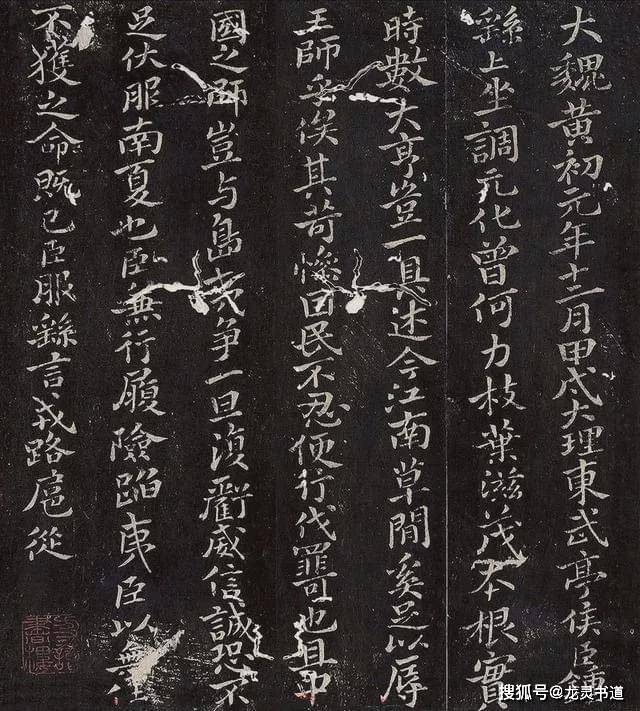 大魏黃初元年十二月甲戌大理東武亭侯臣鍾
繇上坐調元化曾何力枝葉滋茂本根實
時數大亨豈一具述今江南草間奚足以辱
王師乎俟其苛慘困民不忍便行伐罪可也且中
國之師豈与島夷爭一旦威信誠恐不
足伏服南夏也臣無行履險蹈夷臣以無任
不獲之命既已臣服繇言戎路扈從
搜狐号@龙灵书道